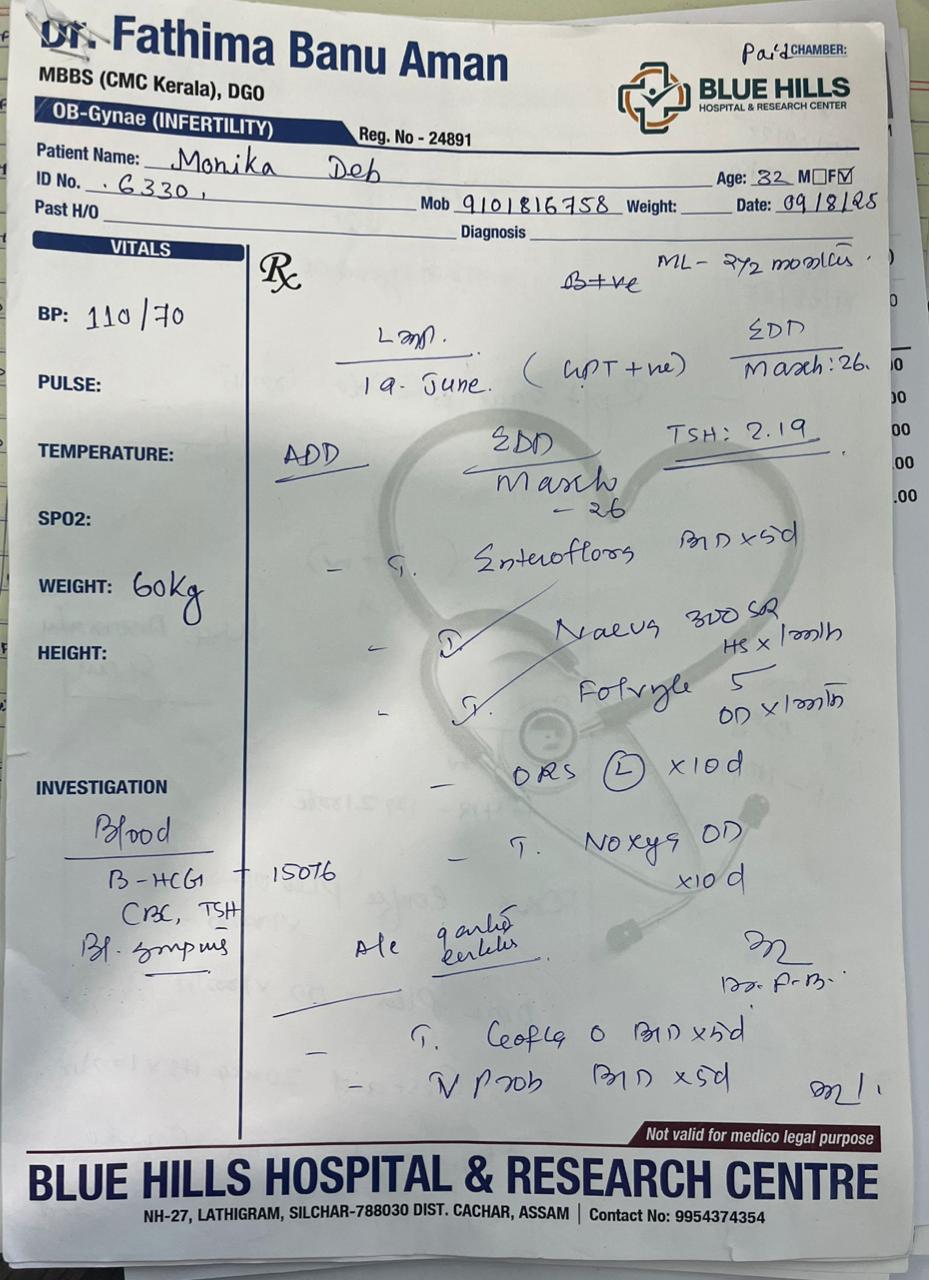 Dr. Fathima Banu Aman
MBBS (CMC Kerala), DGO
OB-Gynae (INFERTILITY)
Reg. No - 24891
Paid CHAMBER:
BLUE HILLS
HOSPITAL & RESEARCH CENTER
Patient Name: Monika Deb
Age: 32 M F
ID No. 6330,
Mob 9101816758 Weight: Date: 09/8/25
Past H/O
Diagnosis
VITALS
BP: 110/70
PULSE:
TEMPERATURE:
SPO2:
WEIGHT: 60kg
HEIGHT:
INVESTIGATION
Blood
B-HCG + 15076
CBC, TSH
Rx
B+ve
ML - 2 1/2 months
Lmp.
19. June. (UPT +ve)
EDD
March: 26.
ADD
EDD
March
- 26
TSH: 2.19
- T. BID x 5d
- T. 300 SR
HS x 1 month
- T. 5
OD x 1 month
- ORS (L) x10d
- T. OD
x10 d
Dr. F.B.
- T. O BID x5d
- BID x5d
Not valid for medico legal purpose
BLUE HILLS HOSPITAL & RESEARCH CENTRE
NH-27, LATHIGRAM, SILCHAR-788030 DIST. CACHAR, ASSAM | Contact No: 9954374354